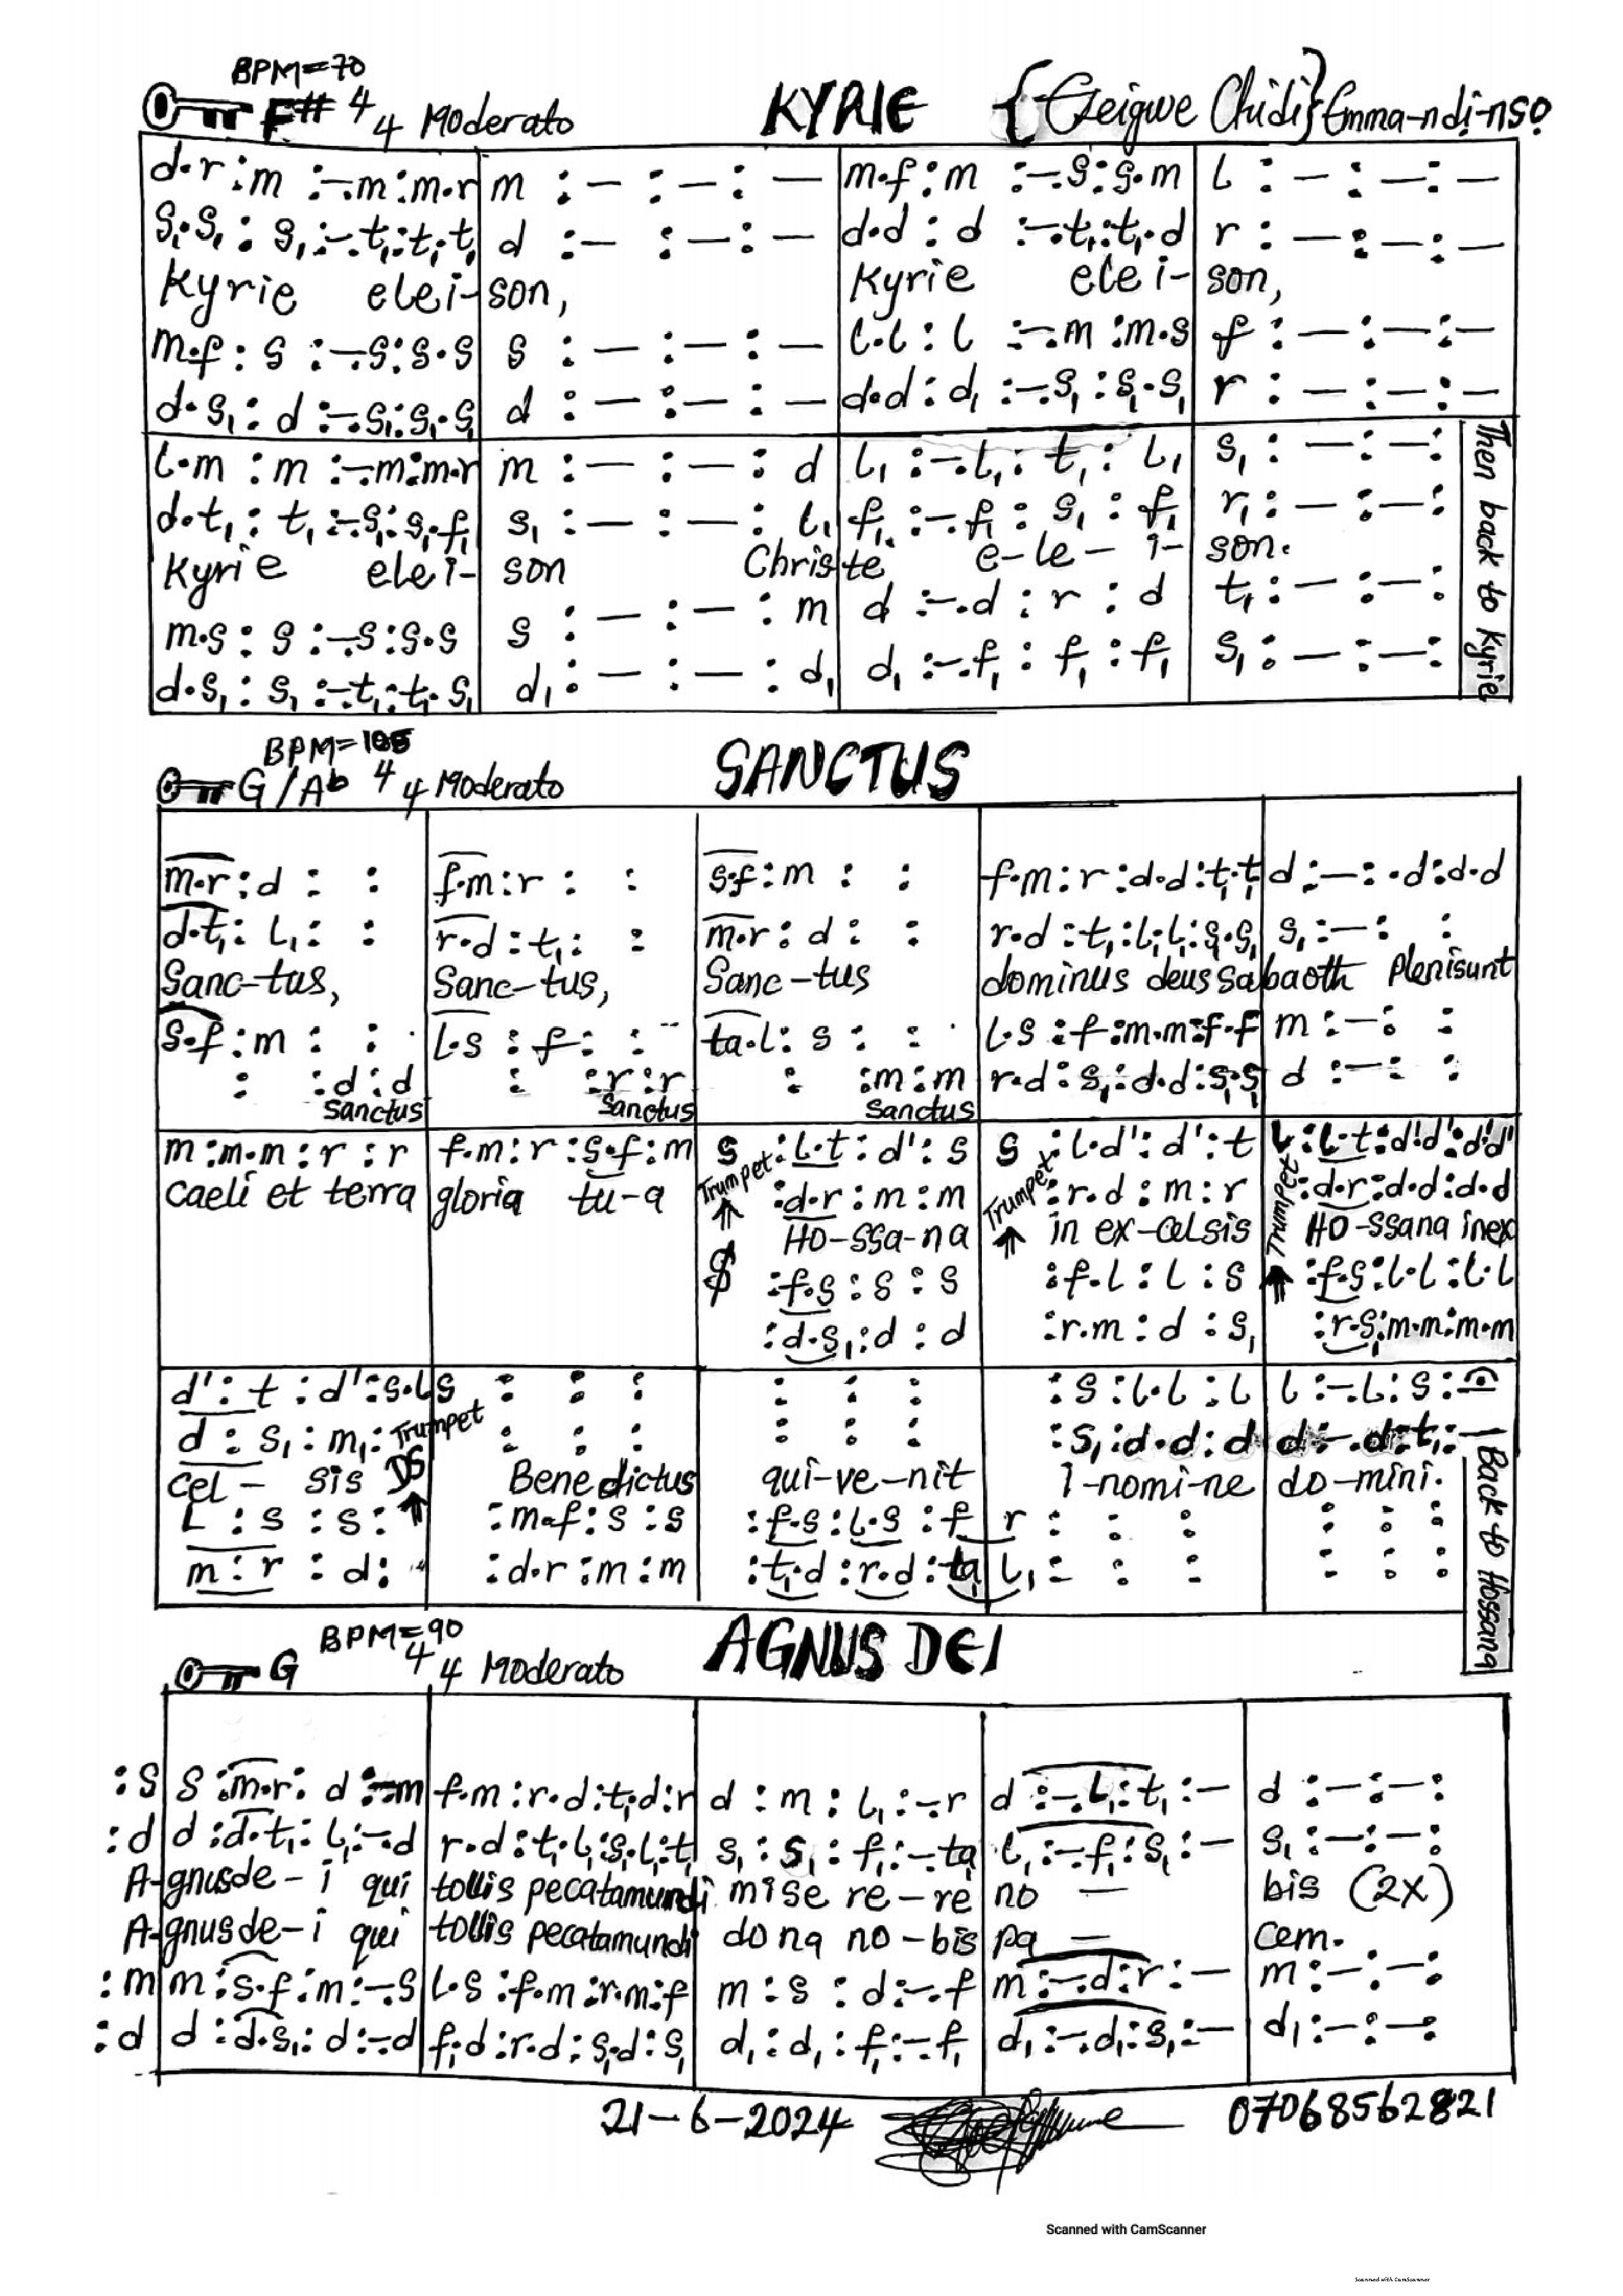 BPM=70
F# 4/4 Moderato KYRIE {Ezeigwe Chidi} Emma-ndi-nso
d.r:m :-.m:m.r | m :- :- :- | m.f:m :-.s:s.m | l :- :- :-
s₁.s₁:s₁:-.t₁:t₁.t₁ | d :- :- :- | d.d:d :-.t₁:t₁.d | r :- :- :-
Kyrie elei-son, Kyrie elei-son,
m.f:s :-.s:s.s | s :- :- :- | l.l:l :-.m:m.s | f :- :- :-
d.s₁:d :-.s₁:s₁.s₁ | d :- :- :- | d.d:d₁ :-.s₁:s₁.s₁ | r :- :- :-
l.m:m :-.m:m.r | m :- :- :d | l₁ :-.l₁:t₁:l₁ | s₁ :- :- :
d.t₁:t₁:-.s₁:s₁.f₁ | s₁ :- :- :l₁ | f₁ :-.f₁:s₁:f₁ | r₁ :- :- :
Kyrie elei-son Christe e-le-i-son.
m.s:s :-.s:s.s | s :- :- :m | d :-.d:r:d | t₁ :- :- :
d.s₁:s₁:-.t₁:t₁.s₁ | d₁ :- :- :d₁ | d₁ :-.f₁:f₁:f₁ | s₁ :- :- :
Then back to Kyrie
BPM=105
G/Ab 4/4 Moderato SANCTUS
m.r:d : : | f.m:r : : | s.f:m : : | f.m:r:d.d:t₁.t₁ | d :- :.d:d.d
d.t₁:l₁: : | r.d:t₁: : | m.r:d: : | r.d:t₁:l₁.l₁:s₁.s₁ | s₁:-: :
Sanc-tus, Sanc-tus, Sanc-tus dominus deus sabaoth Plenisunt
s.f:m : : | l.s:f: : | ta.l:s: : | l.s:f:m.m:f.f | m:-: :
: :d:d | : :r:r | : :m:m | r.d:s₁:d.d:s₁.s₁ | d :-: :
Sanctus Sanctus Sanctus
m:m.m:r:r | f.m:r:s.f:m | s :l.t:d':s | s :l.d':d':t | l:l.t:d'.d':d'.d'
Caeli et terra gloria tu-a
Trumpet :d.r:m:m | Trumpet :r.d:m:r | Trumpet :d.r:d.d:d.d
Ho-ssa-na in ex-celsis Ho-ssana inex
$ :f.s:s:s | :f.l:l:s | :f.s:l.l:l.l
:d.s₁:d:d | :r.m:d:s₁ | :r.s₁:m.m:m.m
d':t:d':s.l | s : : : | : : : | :s:l.l:l | l:-.l:s:
d:s₁:m₁: Trumpet | : : : | : : : | :s₁:d.d:d | d:-.d:t₁:-
Cel-sis DS Benedictus qui-ve-nit I-nomi-ne do-mini.
l:s:s: | :m.f:s:s | :f.s:l.s:f | r : : : | : : :
m:r:d: | :d.r:m:m | :t₁.d:r.d:ta₁ | l₁: : : | : : :
Back to Hossana
BPM=90
G 4/4 Moderato AGNUS DEI
:s | s:m.r:d:-.m | f.m:r.d:t₁.d:r | d:m:l₁:-.r | d:-.l₁:t₁:- | d :- :- :
:d | d:d.t₁:l₁:-.d | r.d:t₁.l₁:s₁.l₁:t₁ | s₁:s₁:f₁:-.ta₁ | l₁:-.f₁:s₁:- | s₁:- :- :
A-gnusde-i qui tollis pecatamundi mise re-re no - bis (2x)
A-gnusde-i qui tollis pecatamundi dona no-bis pa - cem.
:m | m:s.f:m:-.s | l.s:f.m:r.m:f | m:s:d:-.f | m:-.d:r:- | m:- :- :
:d | d:d.s₁:d:-.d | f₁.d:r.d:s₁.d:s₁ | d₁:d₁:f₁:-.f₁ | d₁:-.d₁:s₁:- | d₁:- :- :
21-6-2024 07068562821
Scanned with CamScanner
Scanned with CamScanner